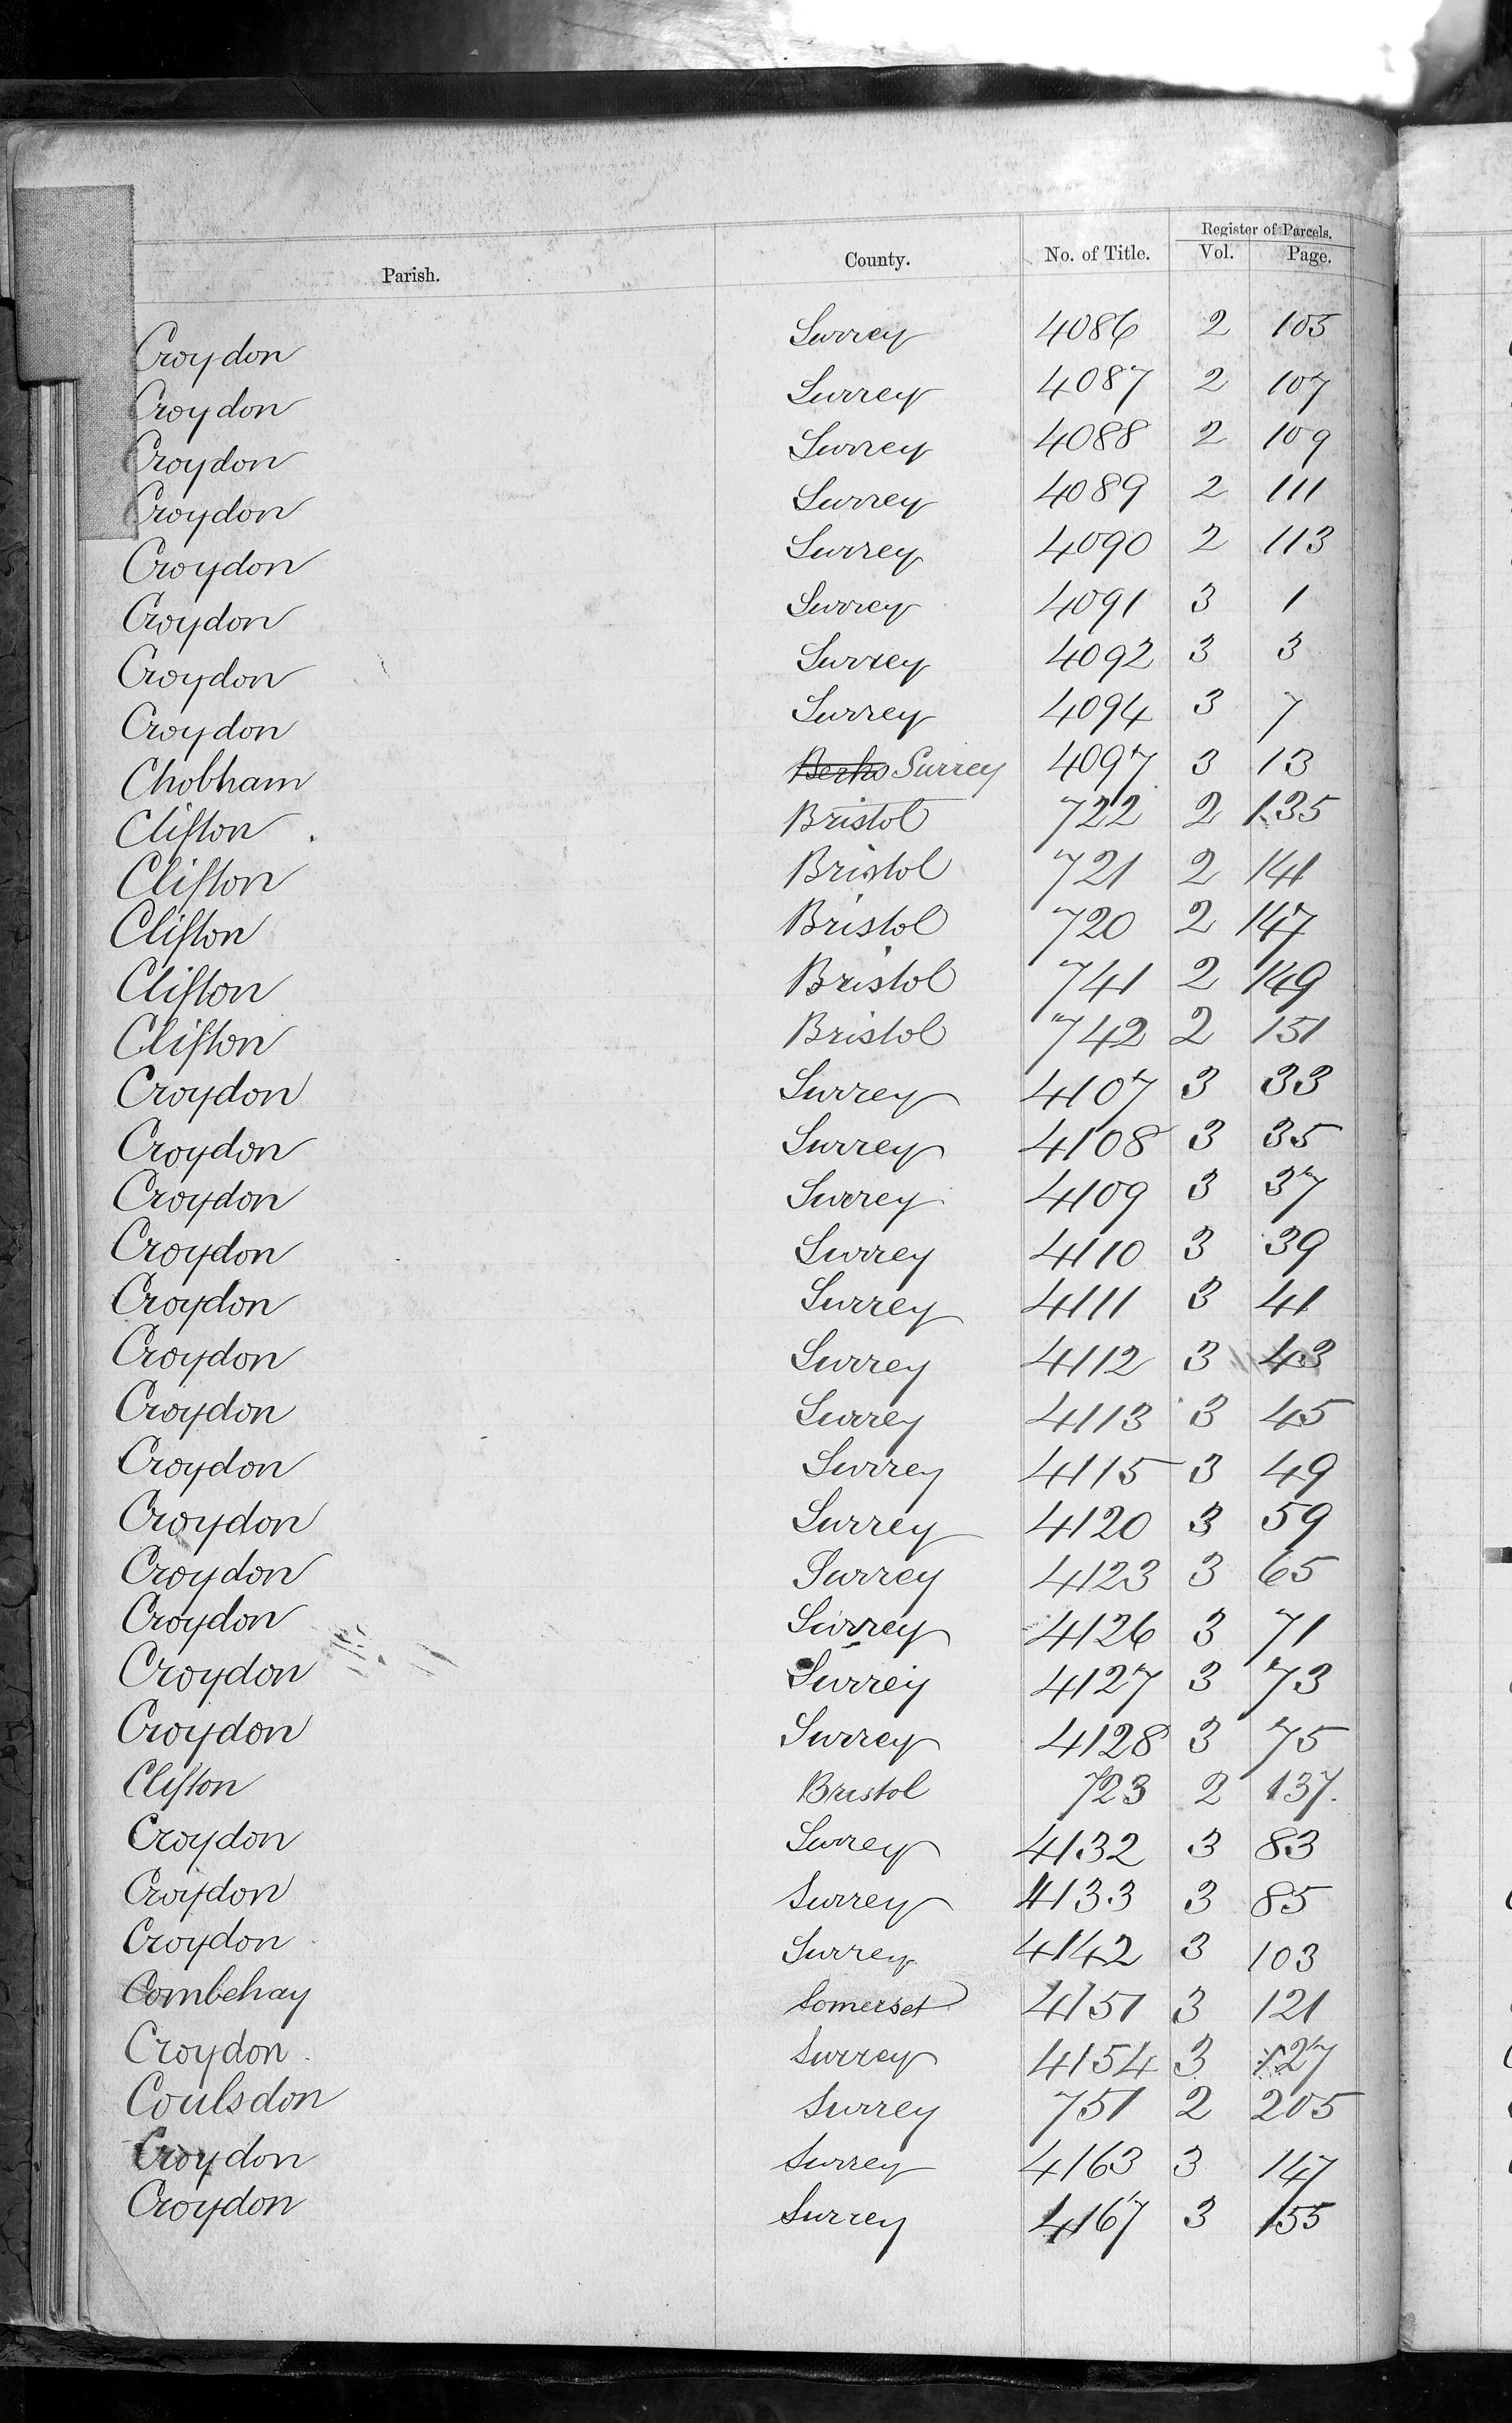 Parish. County. No. of Title. Register of Parcels. Vol. Page.
Croydon Surrey 4086 2 105
Croydon Surrey 4087 2 107
Croydon Surrey 4088 2 109
Croydon Surrey 4089 2 111
Croydon Surrey 4090 2 113
Croydon Surrey 4091 3 1
Croydon Surrey 4092 3 3
Croydon Surrey 4094 3 7
Chobham Berks Surrey 4097 3 13
Clifton Bristol 722 2 135
Clifton Bristol 721 2 141
Clifton Bristol 720 2 147
Clifton Bristol 741 2 149
Clifton Bristol 742 2 151
Croydon Surrey 4107 3 33
Croydon Surrey 4108 3 35
Croydon Surrey 4109 3 37
Croydon Surrey 4110 3 39
Croydon Surrey 4111 3 41
Croydon Surrey 4112 3 43
Croydon Surrey 4113 3 45
Croydon Surrey 4115 3 49
Croydon Surrey 4120 3 59
Croydon Surrey 4123 3 65
Croydon Surrey 4126 3 71
Croydon Surrey 4127 3 73
Croydon Surrey 4128 3 75
Clifton Bristol 723 2 137.
Croydon Surrey 4132 3 83
Croydon Surrey 4133 3 85
Croydon Surrey 4142 3 103
Combehay Somerset 4151 3 121
Croydon Surrey 4154 3 127
Coulsdon Surrey 751 2 205
Croydon Surrey 4163 3 147
Croydon Surrey 4167 3 155